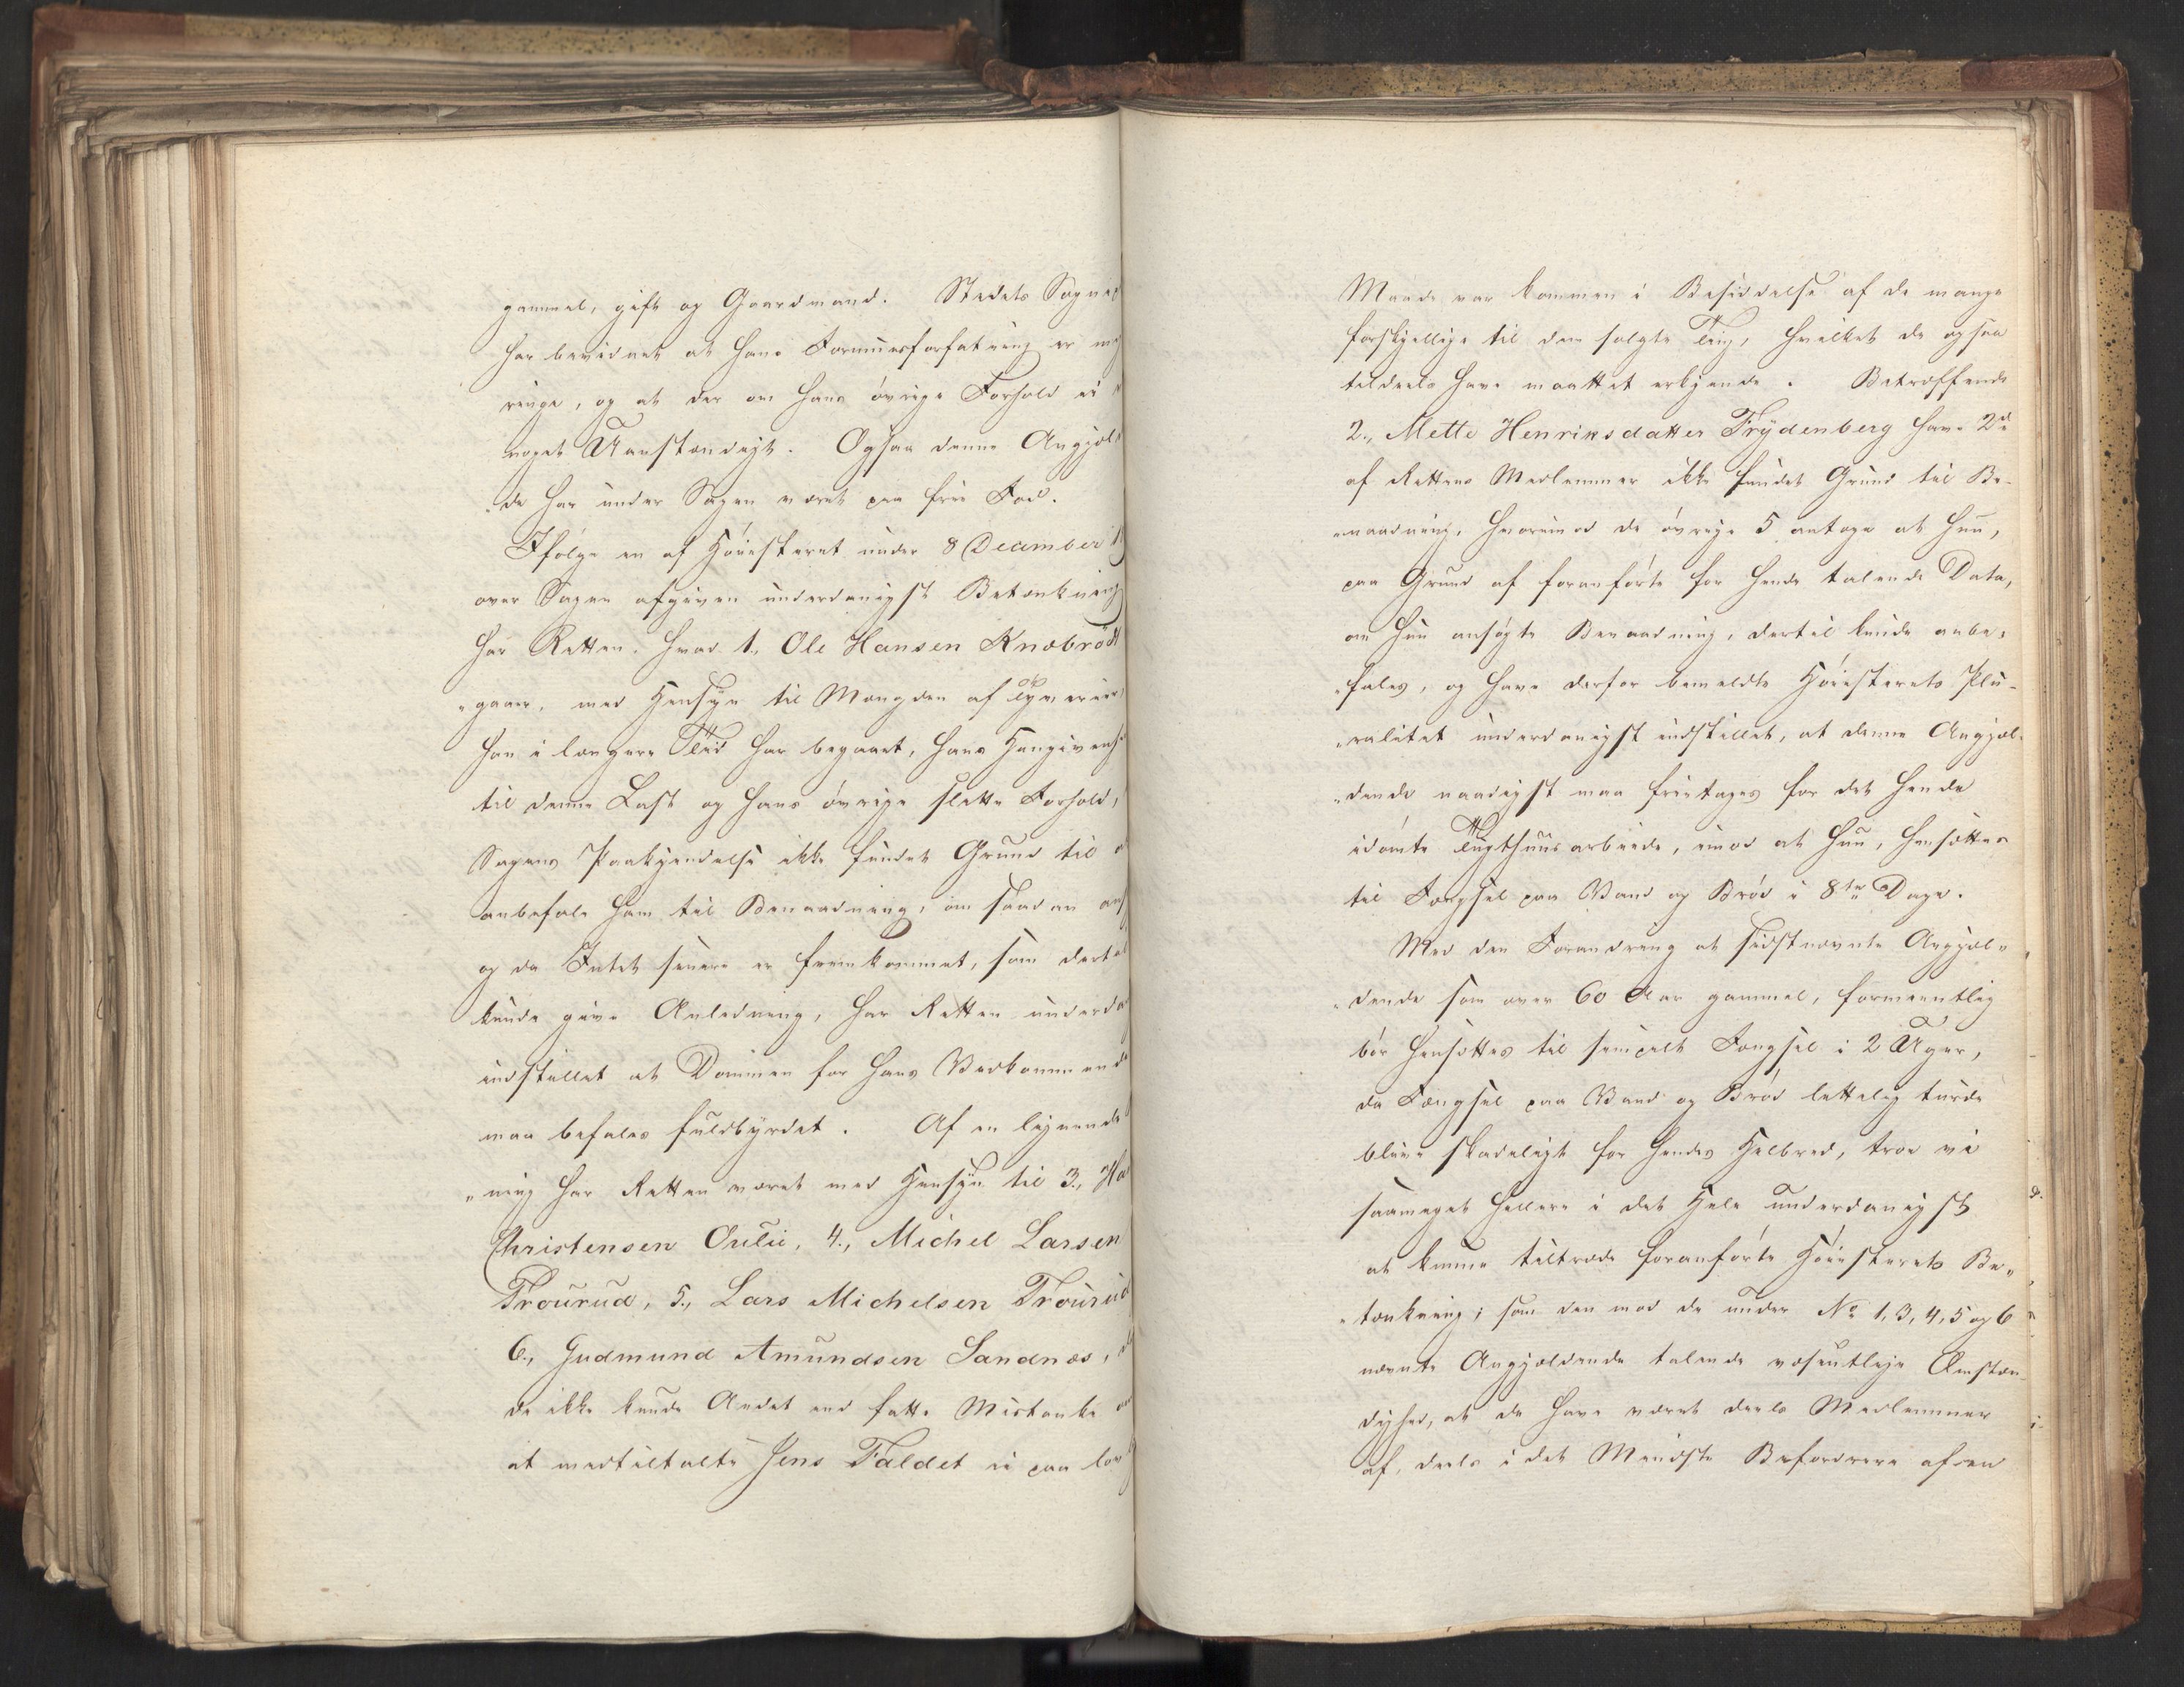 gammel, gift og Gaardmand. Stedets Sogne
har bevidnet at hans Formuesforfatning er meg
ringe, og at der om hans øvrige Forhold ei
noget Uanstændigt. Ogsaa denne Angjæl
„de har under Sagen været paa frie Fod.
Ifølge en af Høiesteret under 8 December
over Sagen afgiven underdanigst Betænkning
har Retten, hvad 1., Ole Hansen Knæbrødt
„gaaer, med Hensyn til Mængden af Tyverier
han i længere Tiid har begaaet, hans Hengivenh
til denne Last og hans øvrige slette Forhold,
Sagens Paakjendelse ikke fundet Grund til
anbefale ham til Benaadning, om saadan
og da Intet senere er fremkommet, som dertil
kunde give Anledning, har Retten underda
indstillet at Dommen for hans Vedkommende
maa befales fuldbyrdet. Af en lignende
„ning har Retten været med Hensyn til 3., Ha
Christensen Oulie, 4., Michel Larsen
Trourud, 5., Lars Michelsen Trourud
6., Gudmund Amundsen Sandnæs,
de ikke kunde Andet end fatte Mistanke
at medtiltalte Jens Faldet ei paa lov
Maade var kommen i Besiddelse af de mange
forskjellige til dem solgte Ting, hvilket de ogsaa
tildeels have maattet erkjende. Betræffende
2., Mette Henriksdatter Frydenberg have 2de
af Rettens Medlemmer ikke fundet Grund til Be-
„naadning, hvorimod de øvrige 5 antage at hun,
paa Grund af foranførte for hende talende Data,
om hun ansøgte Benaadning, dertil kunde anbe,
„fales, og have derfor bemeldte Høiesterets Plu-
„ralitet underdanigst indstillet, at denne Angjæl-
„dende naadigst maa frietages for det hende
idømte Tugthuusarbeide, imod at hun, hensættes
til Fængsel paa Vand og Brød i 8te Dage.
Med den Forandring at sidstnævnte Angjæl-
„dende som over 60 Aar gammel, formeentlig
bør hensættes til simpelt Fængsel i 2 Uger,
da Fængsel paa Vand og Brød lettelig turde
blive skadeligt for hendes Helbred, troe vi
saameget hellere i det Hele underdanigst
at kunne tiltræde foranførte Høiesterets Be„
„tænkning; som den mod de under No 1, 3, 4, 5 og 6
nævnte Angjældende talende væsentlige Omstæn
dighed, at de have været deels Medlemmer
af, deels i det Mindste Befordrere af en